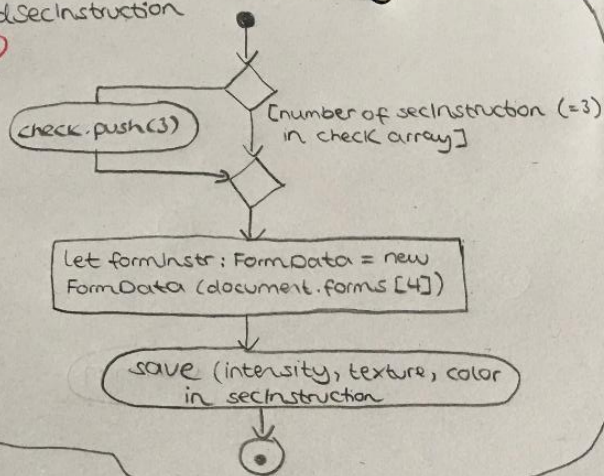 dSecInstruction
check.push(3)
[number of secInstruction (=3)
in check array]
let formInstr: FormData = new
FormData (document.forms [4])
save (intensity, texture, color
in secInstruction